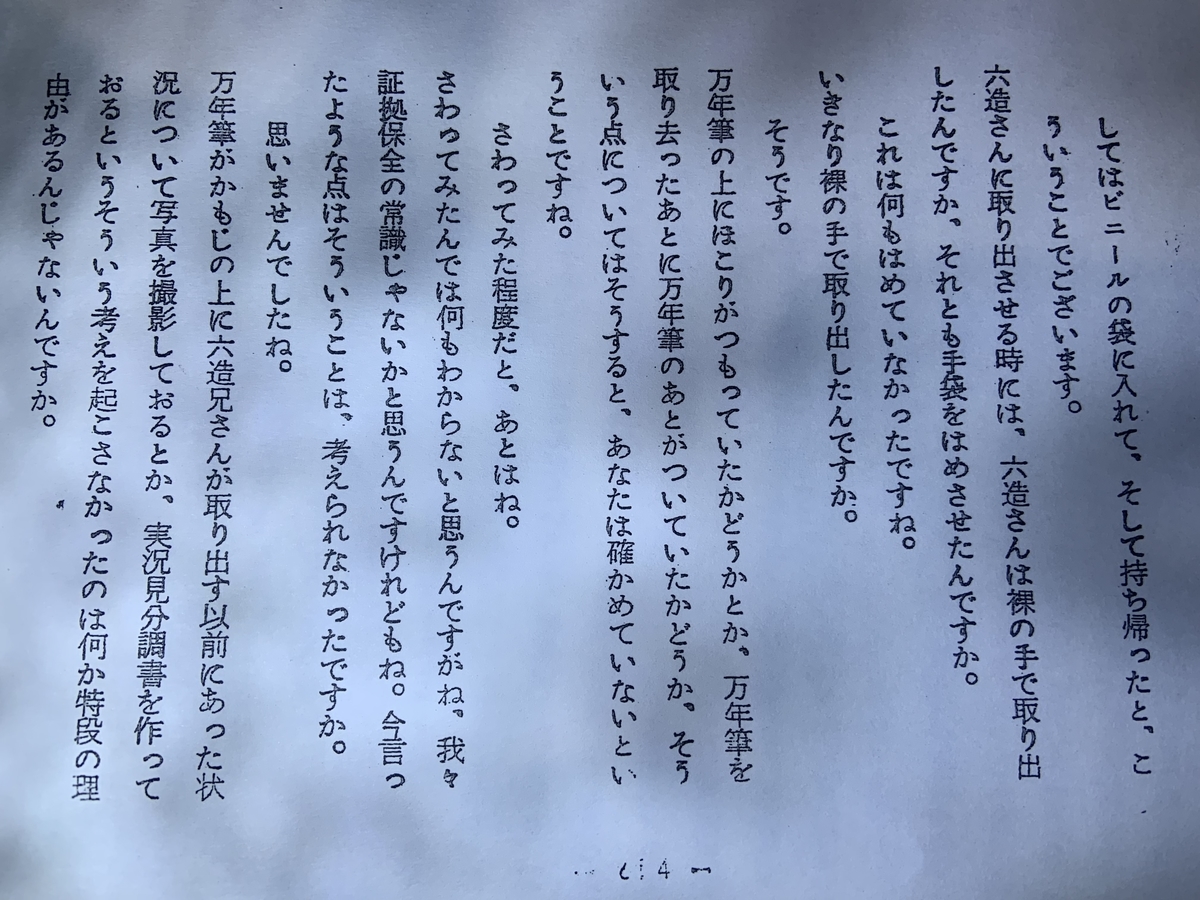 してはビニールの袋に入れて、そして持ち帰ったと、こ
ういうことでございます。
六造さんに取り出させる時には、六造さんは裸の手で取り出
したんですか、それとも手袋をはめさせたんですか。
これは何もはめていなかったですね。
いきなり裸の手で取り出したんですか。
そうです。
万年筆の上にほこりがつもっていたかどうかとか、万年筆を
取り去ったあとに万年筆のあとがついていたかどうか、そう
いう点についてはそうすると、あなたは確かめていないとい
うことですね。
さわってみた程度だと、あとはね。
さわってみたんでは何もわからないと思うんですがね、我々
証拠保全の常識じゃないかと思うんですけれどもね。今言っ
たような点はそういうことは、考えられなかったですか。
思いませんでしたね。
万年筆がかもじの上に六造兄さんが取り出す以前にあった状
況について写真を撮影しておるとか、実況見分調書を作って
おるというそういう考えを起こさなかったのは何か特段の理
由があるんじゃないんですか。